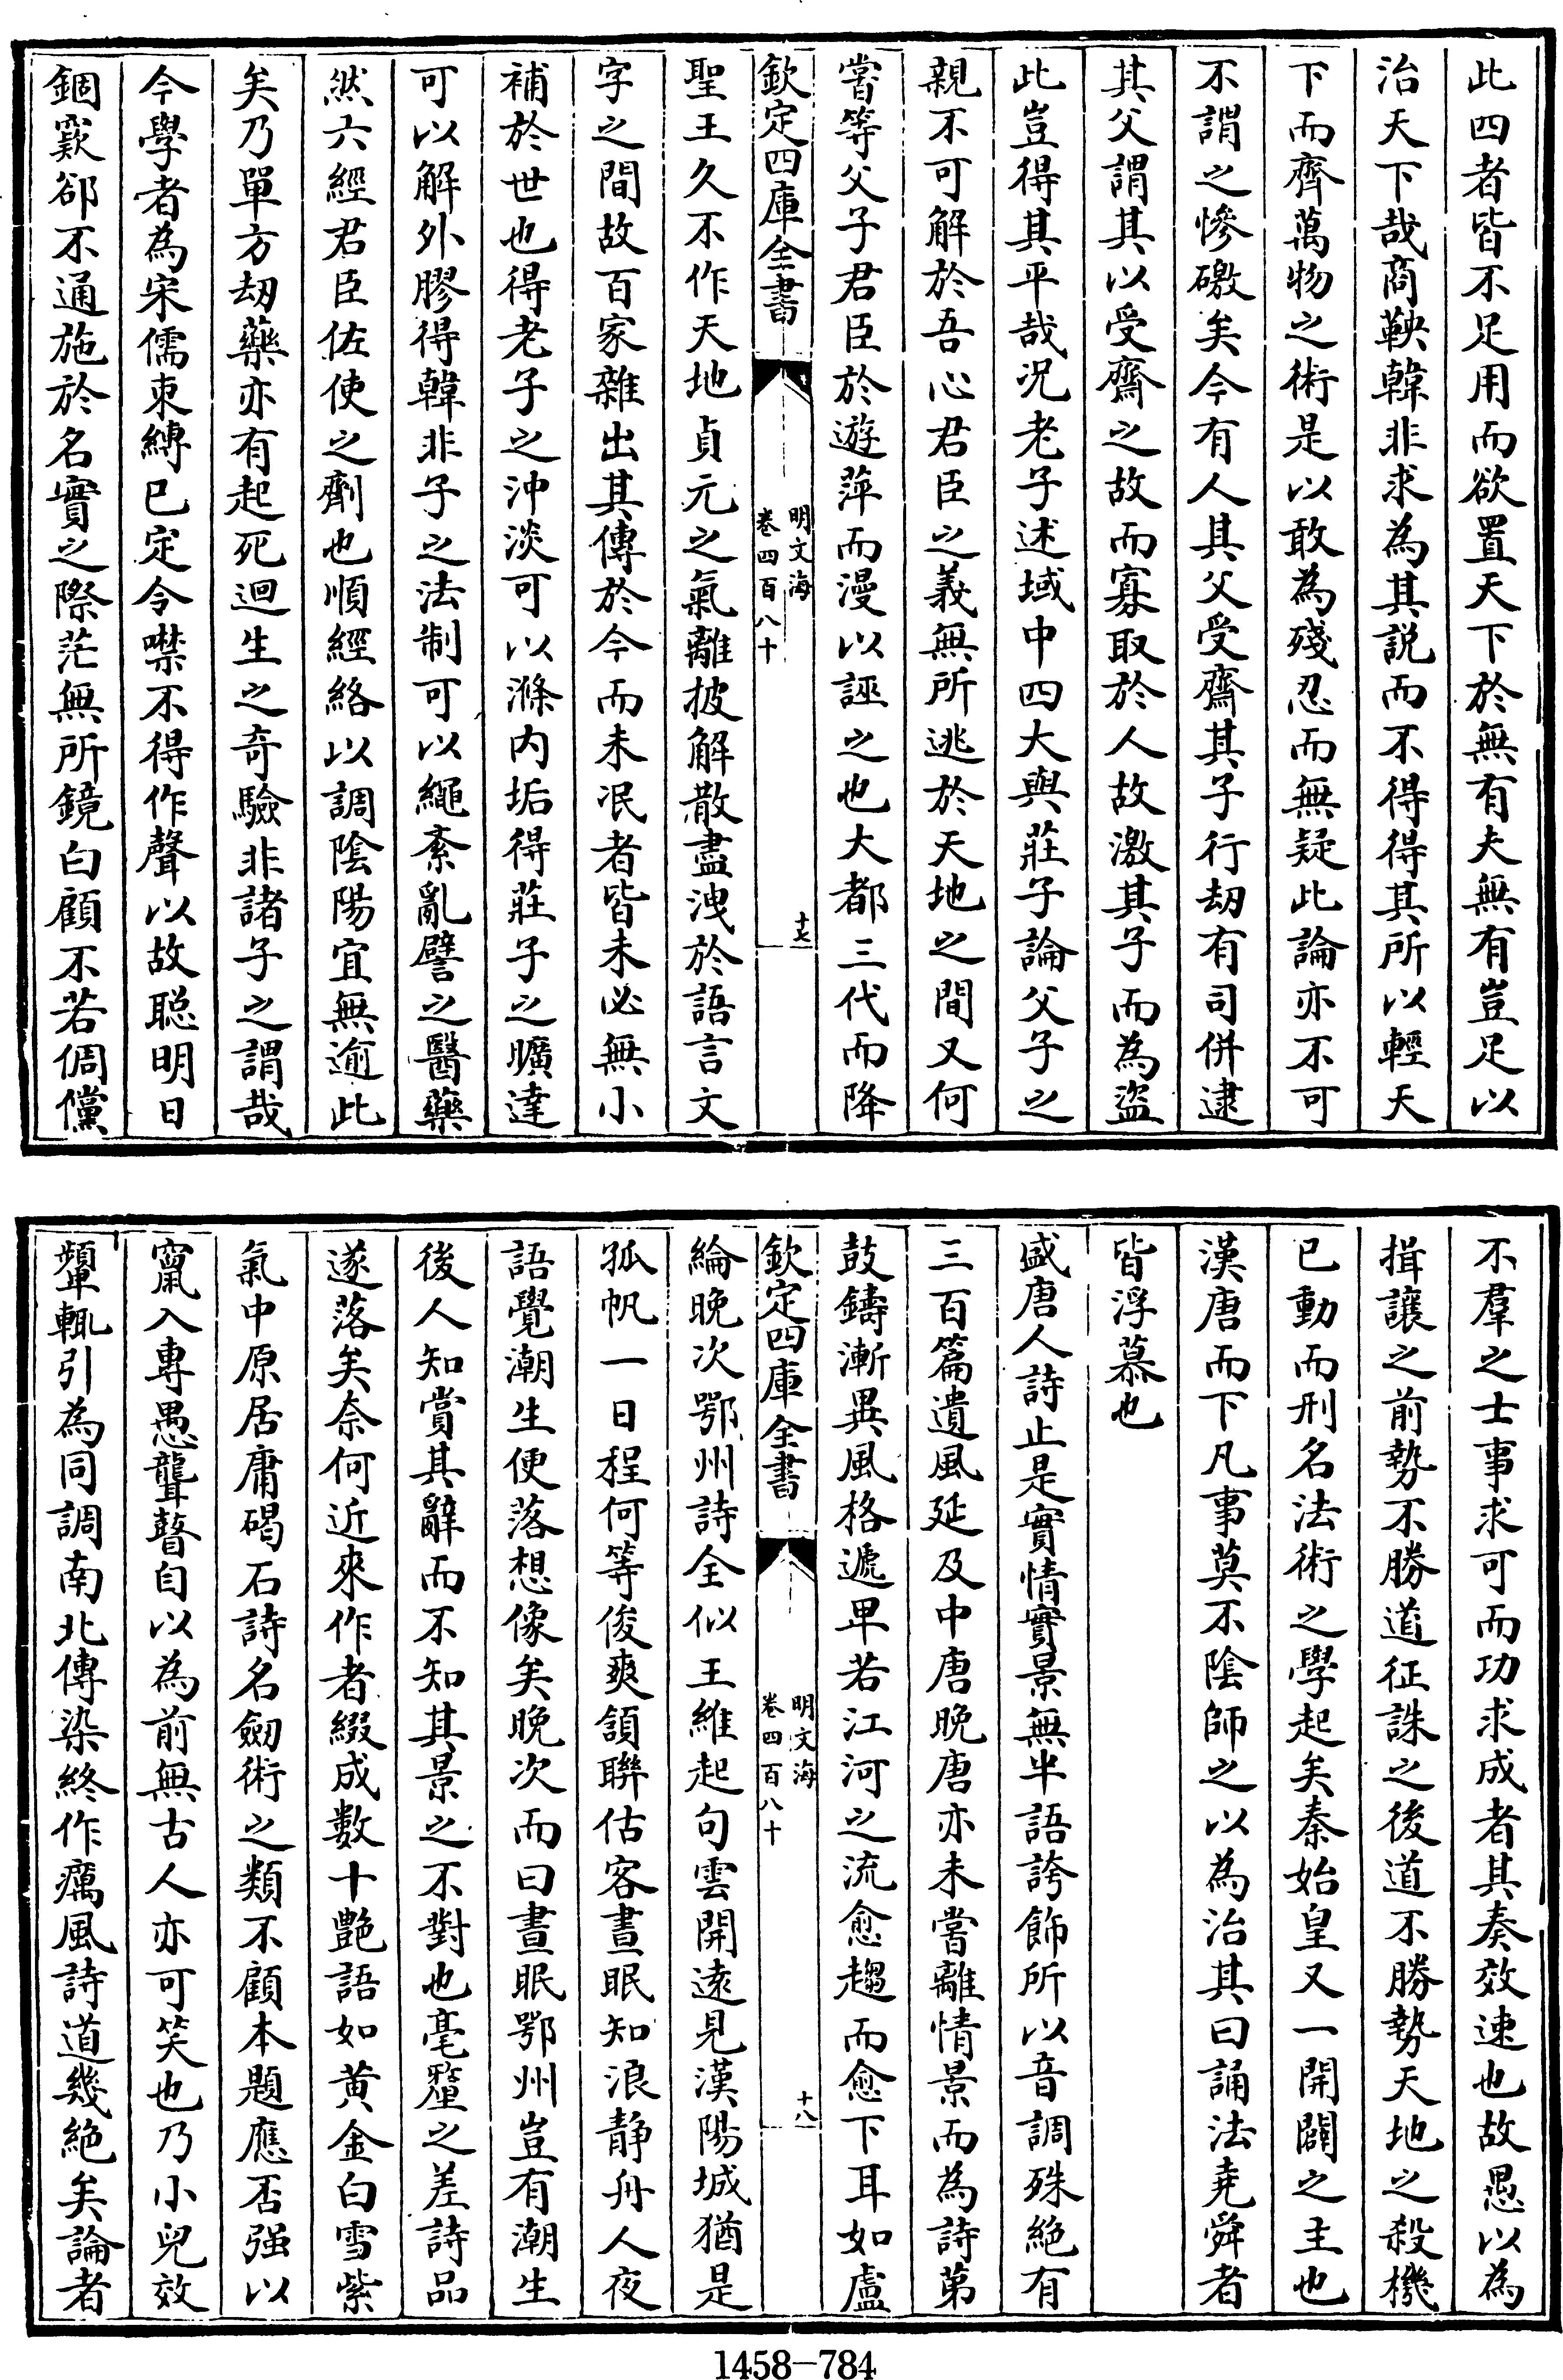 此四者皆不足用而欲置天下於無有夫無有豈足以
治天下哉商鞅韓非求為其説而不得得其所以輕天
下而齊萬物之術是以敢為殘忍而無疑此論亦不可
不謂之慘礉矣今有人其父受齋其子行刼有司併逮
其父謂其以受齋之故而寡取於人故激其子而為盜
此豈得其平哉况老子述域中四大與莊子論父子之
親不可解於吾心君臣之義無所逃於天地之間又何
嘗等父子君臣於遊萍而漫以誣之也大都三代而降
欽定四庫全書
明文海
卷四百八十
十七
聖王久不作天地貞元之氣離披解散盡洩於語言文
字之間故百家雜出其傳於今而未泯者皆未必無小
補於世也得老子之沖淡可以滌内垢得莊子之曠達
可以解外膠得韓非子之法制可以繩紊亂譬之醫藥
然六經君臣佐使之劑也順經絡以調陰陽宜無逾此
矣乃單方刼藥亦有起死迴生之奇驗非諸子之謂哉
今學者為宋儒束縛已定令噤不得作聲以故聰明日
錮竅郤不通施於名實之際茫無所鏡白顧不若倜儻
不羣之士事求可而功求成者其奏效速也故愚以為
揖讓之前勢不勝道征誅之後道不勝勢天地之殺機
已動而刑名法術之學起矣秦始皇又一開闢之主也
漢唐而下凡事莫不陰師之以為治其曰誦法堯舜者
皆浮慕也
盛唐人詩止是實情實景無半語誇飾所以音調殊絶有
三百篇遺風延及中唐晚唐亦未嘗離情景而為詩第
鼓鑄漸異風格遞卑若江河之流愈趨而愈下耳如盧
欽定四庫全書
明文海
卷四百八十
十八
綸晚次鄂州詩全似王維起句雲開遠見漢陽城猶是
孤帆一日程何等俊爽頷聯估客晝眠知浪静舟人夜
語覺潮生便落想像矣晚次而曰晝眠鄂州豈有潮生
後人知賞其辭而不知其景之不對也毫釐之差詩品
遂落矣奈何近來作者綴成數十艶語如黄金白雪紫
氣中原居庸碣石詩名劒術之類不顧本題應否强以
竄入專愚聾瞽自以為前無古人亦可笑也乃小兒效
顰輒引為同調南北傳染終作癘風詩道幾絶矣論者
1458－784